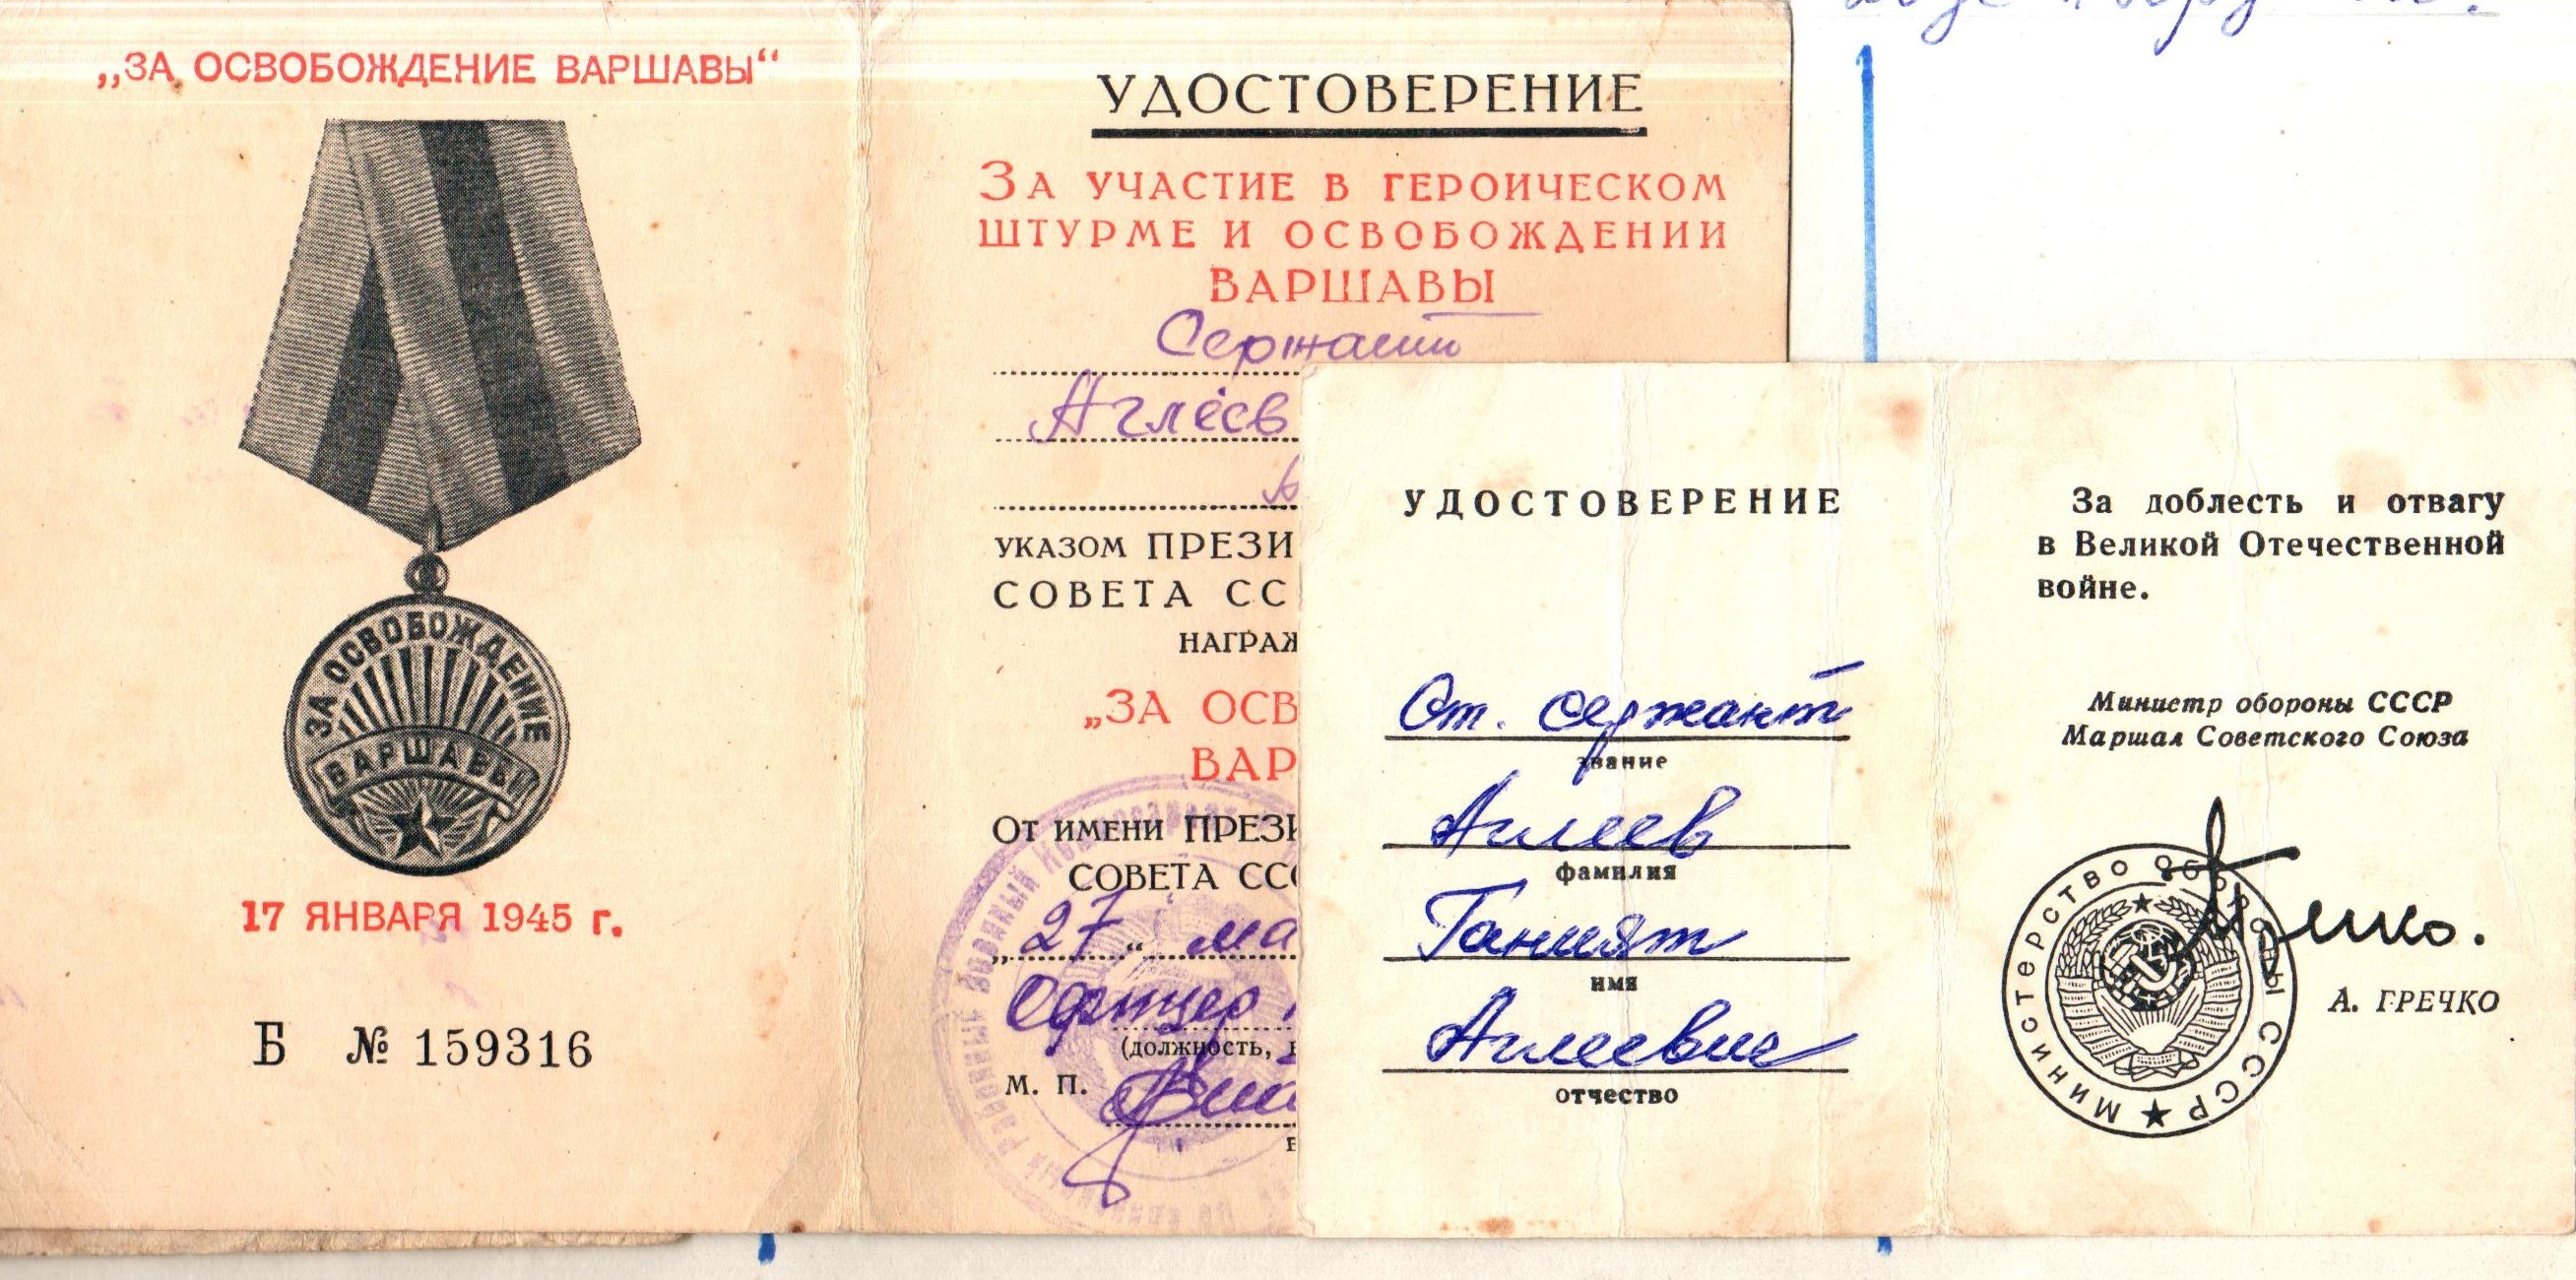 „ЗА ОСВОБОЖДЕНИЕ ВАРШАВЫ“
ЗА ОСВОБОЖДЕНИЕ
ВАРШАВЫ
17 ЯНВАРЯ 1945 г.
Б № 159316
УДОСТОВЕРЕНИЕ
ЗА УЧАСТИЕ В ГЕРОИЧЕСКОМ
ШТУРМЕ И ОСВОБОЖДЕНИИ
ВАРШАВЫ
Сержант
Аглеев
УКАЗОМ ПРЕЗИ
СОВЕТА СС
НАГРАЖ
„ЗА ОСВ
ВАР
ОТ ИМЕНИ ПРЕЗИ
СОВЕТА ССС
„27“ ма
Офицер
(должность,
М. П.
УДОСТОВЕРЕНИЕ
Ст. сержант
звание
Аглеев
фамилия
Ганият
имя
Аглеевич
отчество
За доблесть и отвагу
в Великой Отечественной
войне.
Министр обороны СССР
Маршал Советского Союза
МИНИСТЕРСТВО ОБОРОНЫ СССР
А. ГРЕЧКО